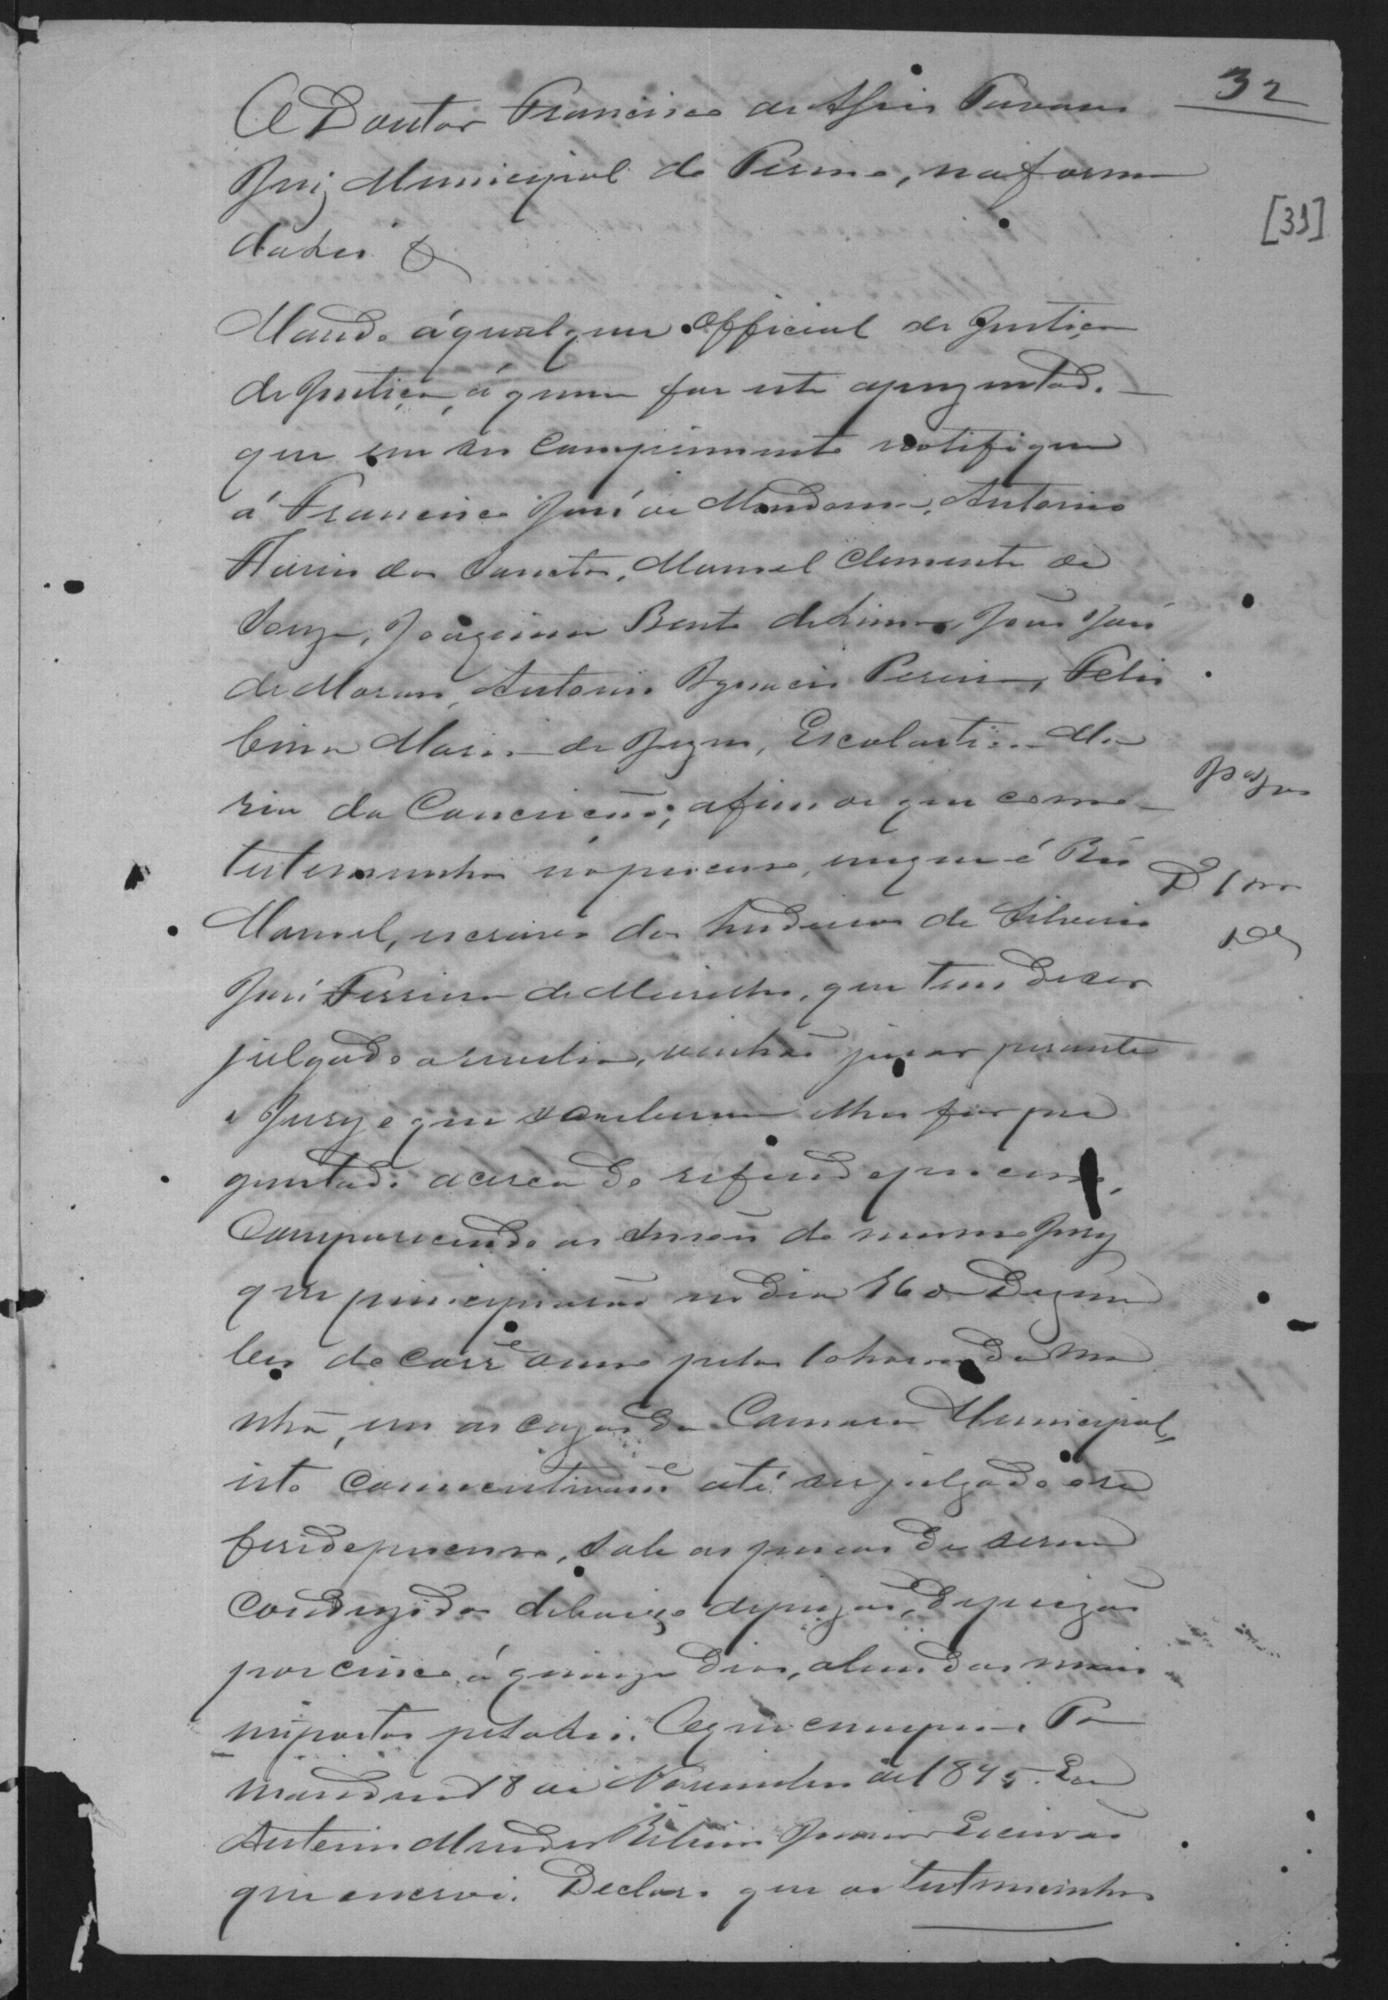 32
[31]
O Doutor Francisco de Assis Tavares
Juiz Municipal do Termo, na forma
da Lei &
Mando á qualquer Official de Justiça
de Justiça, á quem for este aprezentado
que em seu comprimento notifique
á Francisco José de Mendonça, Antonio
dos Sanctos, Manoel Clemente de
Souza, Joaquim Bento de Lima, João José
de Moraes, Antonio Ignacio Pereira, Felis
bina Maria de Jezus, Escolastica Ma
ria da Conceição; afim de que como
testemunhas no processo, em que é Réo
Manoel, escravo dos herdeiros de Silverio
José Ferreira de Meirelles, que tem de ser
julgado, venhão jurar perante
o Jury o que souberem e lhes for per
guntado acerca do referido processo,
Comparecendo as Sessoens do mesmo Jury
que principiarão no dia 16 de Dezem
bro do corre anno pelas 10 horas da ma
nhã, em as cazas da Camara Municipal,
isto consecutivamte até ser julgado o re
ferido processo, sob as penas de serem
conduzidos debaixo de prizão, de prizão
por cinco á quinze dias, alem das mais
impostas pela Lei. O que cumpra. Po
mandu 18 de Novembro de 1845. Eu
Antonio Mendes Ribeiro Escrivão
que escrevi. Declaro que as testemunhas
Pagou